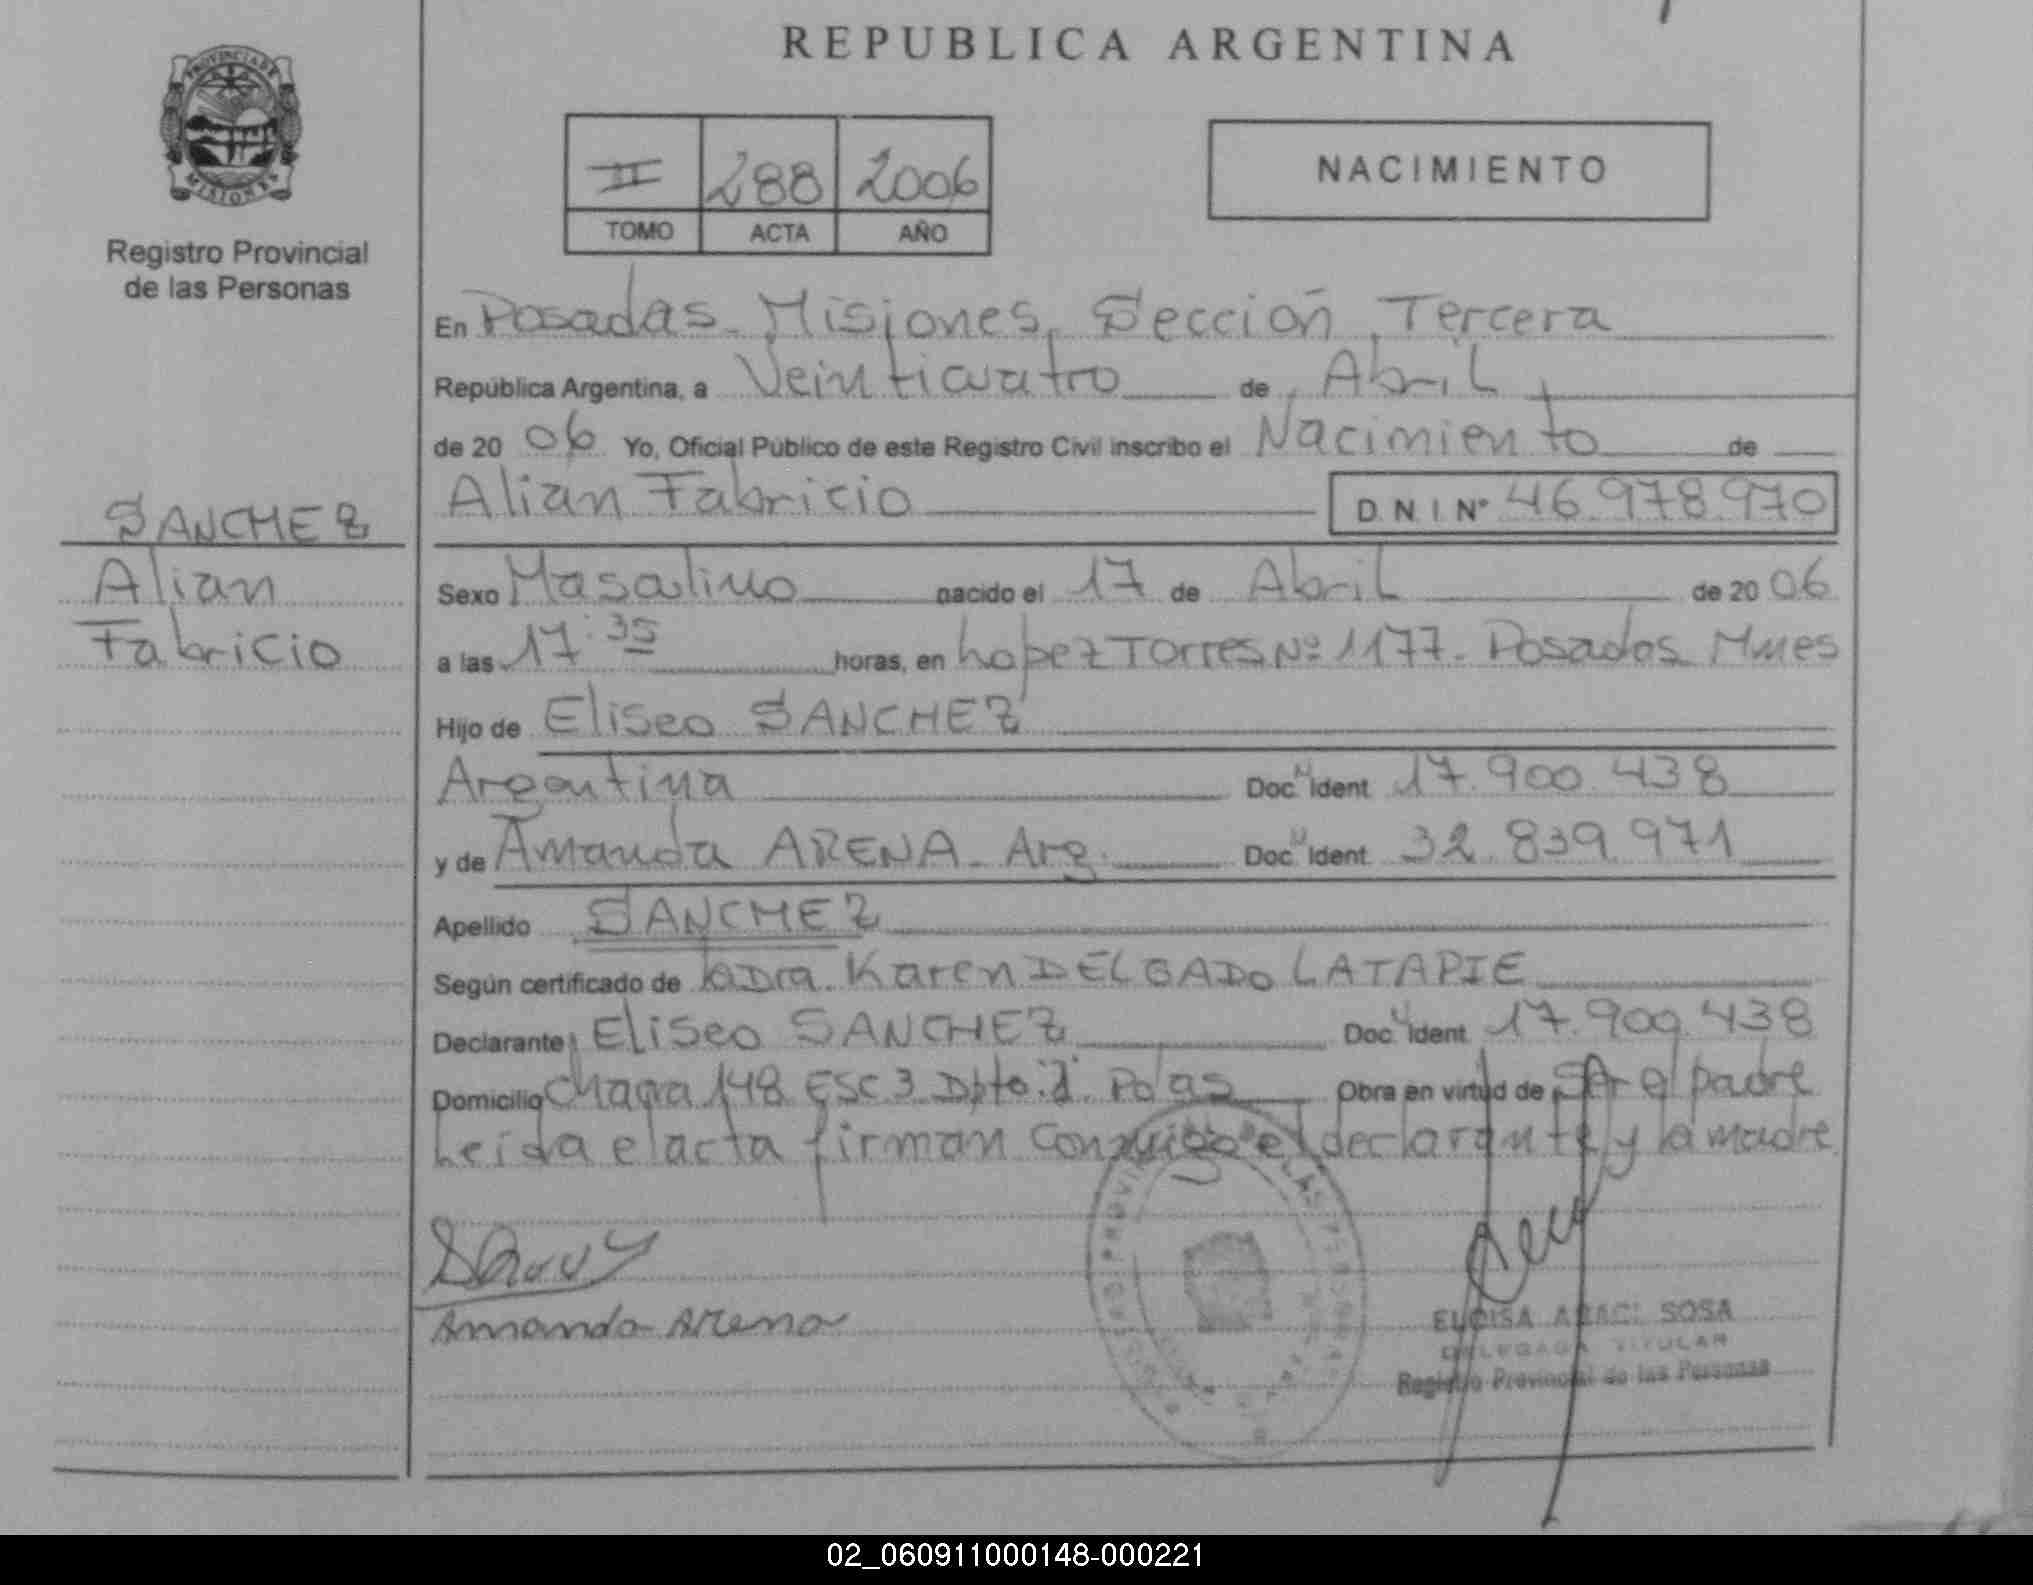 REPUBLICA ARGENTINA
PROVINCIA DE
MISIONES
Registro Provincial
de las Personas
II 288 2006
TOMO ACTA AÑO
NACIMIENTO
En Posadas - Misiones, Sección Tercera
República Argentina, a Veinticuatro de Abril
de 20 06 Yo, Oficial Público de este Registro Civil inscribo el Nacimiento de
Alian Fabricio D.N.I Nº 46.978.970
SANCHEZ
Alian
Fabricio
Sexo Masculino nacido el 17 de Abril de 20 06
a las 17:35 horas, en Lopez Torres Nº 1177 - Posadas Mnes
Hijo de Eliseo SANCHEZ
Argentina Doc. Ident. 17.900.438
y de Amanda ARENA - Arg. Doc. Ident. 32.839.971
Apellido SANCHEZ
Según certificado de la Dra. Karen DELGADO LATAPIE
Declarante Eliseo SANCHEZ Doc. Ident. 17.900.438
Domicilio Chacra 148 ESC 3 Dpto. Pdas Obra en virtud de Ser el padre
Leida el acta firman conmigo el declarante y la madre
Amanda Arena
ELOISA ARACI SOSA
DELEGADA TITULAR
Registro Provincial de las Personas
02_060911000148-000221